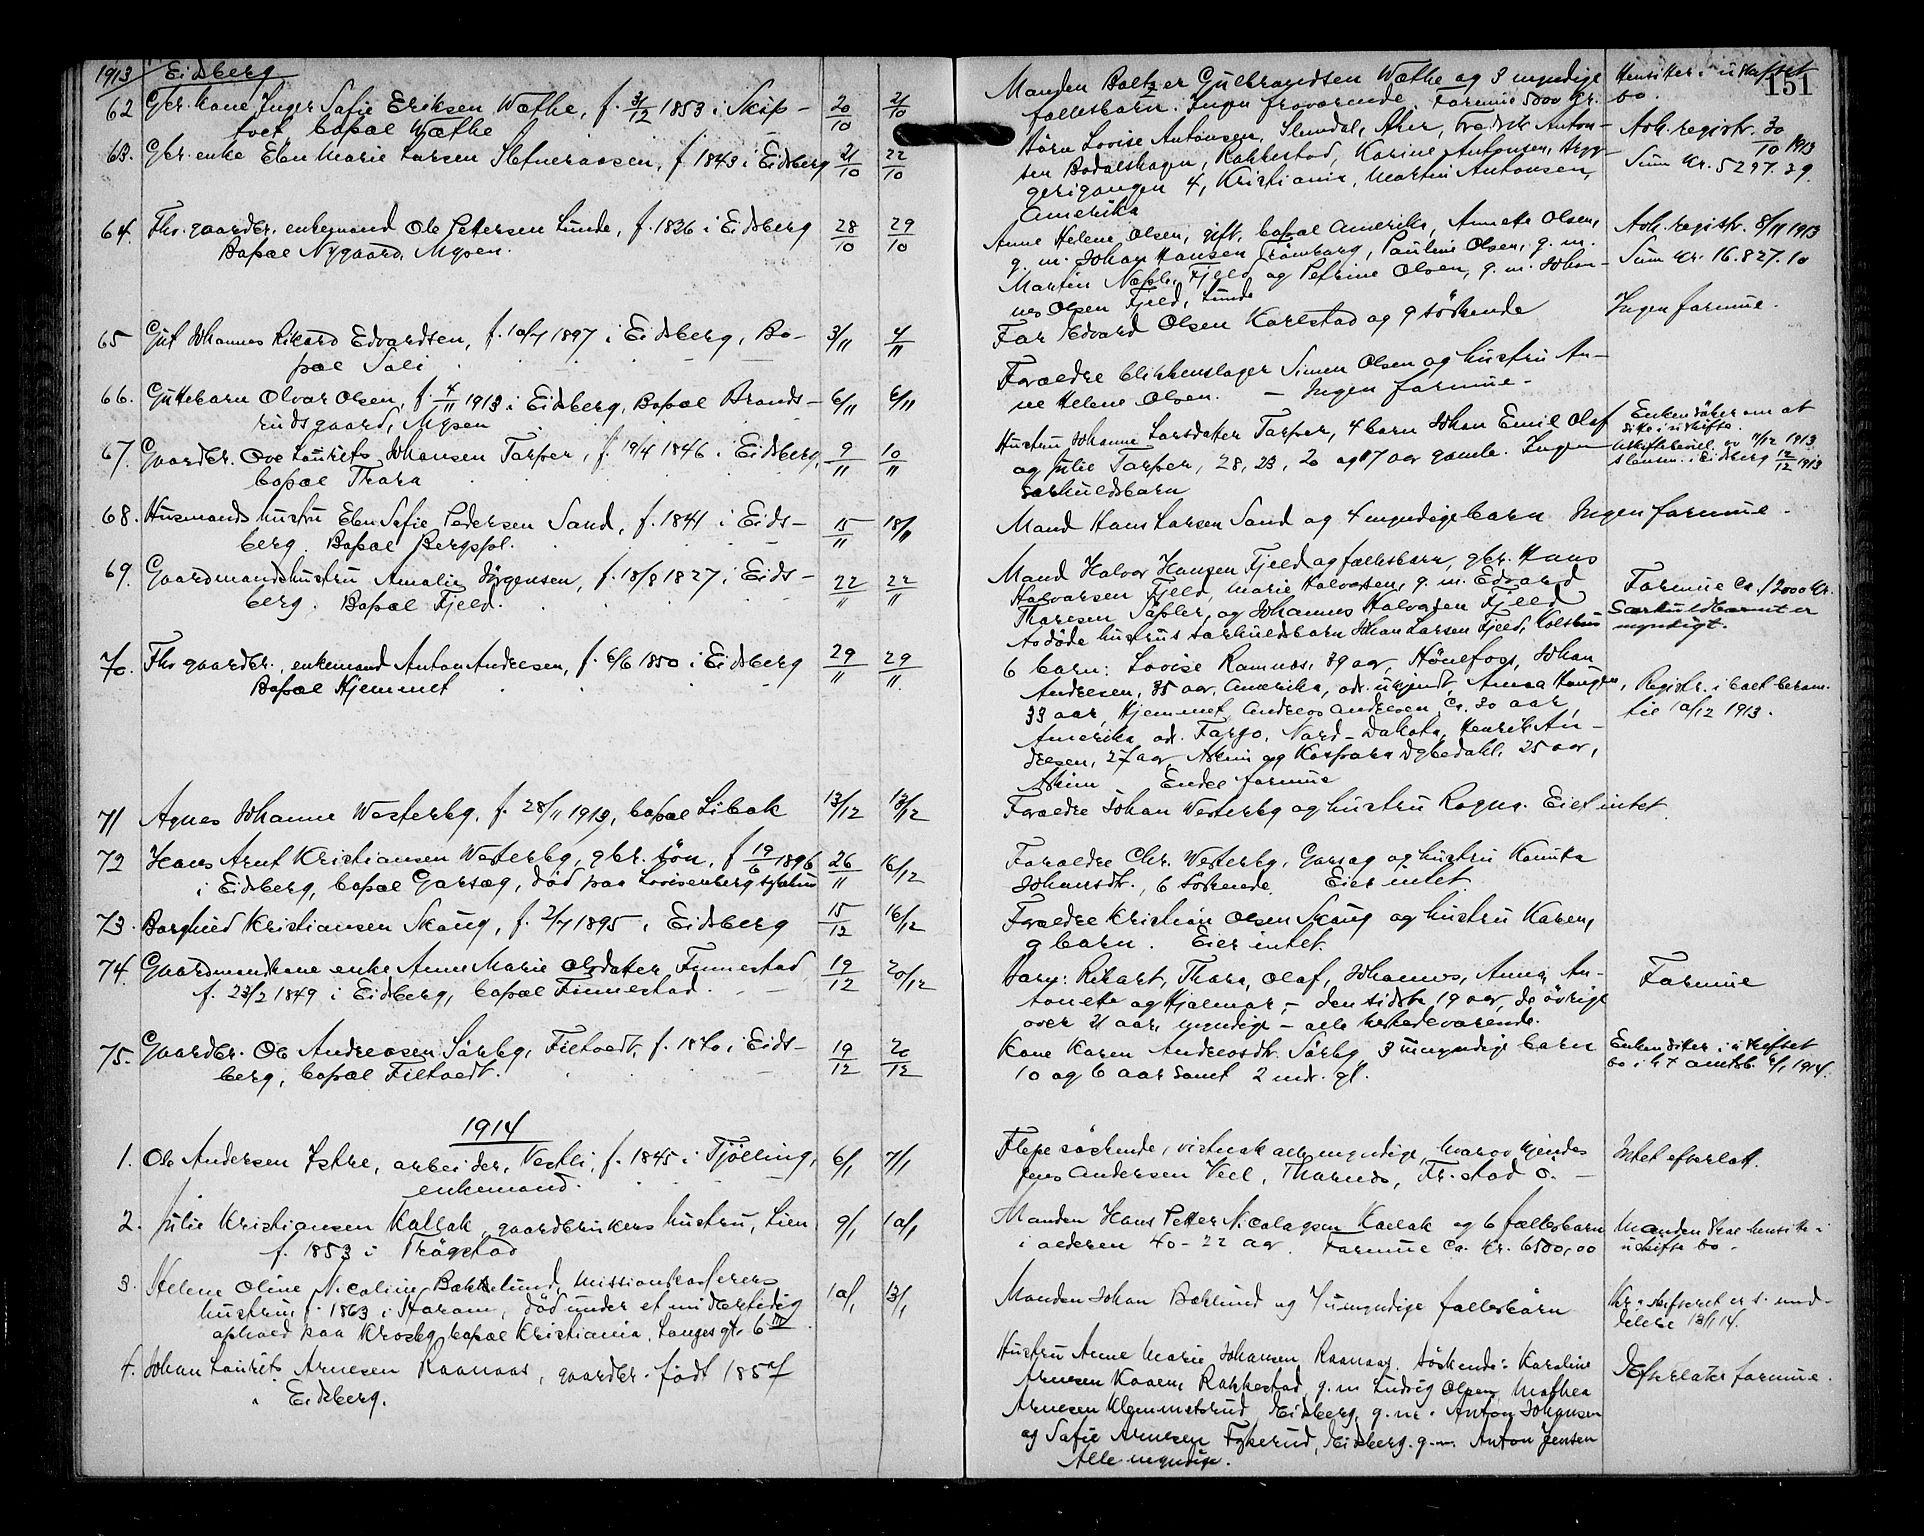 1913 Eidsberg
62 Gbr. kone Inger Sofie Eriksen Wæthe, f. 31/12 1853 i Skip-
tvet, bopæl Wæthe
20/10 21/10
Manden Baltzer Gulbrandsen Wæthe og 3 myndige
fællesbarn. Ingen fraværende. Formue 5000 kr.
Hensitter i uskiftet
bo.
151
63. Gbr. enke Elen Marie Larsen f. 1843 i Eidsberg
21/10 22/10
Børn Lovise Antonsen, Slemdal, Aker, Fredrik Anton-
sen Bodalshagen, Rakkestad, Karine Antonsen, Bryg-
gerigangen 4, Kristiania, Martin Antonsen,
Amerika
Avh. registr. 30/10 1913
Sum kr. 5297.39.
64. Fhv. gaardbr. enkemand Ole Petersen Lunde, f. 1826 i Eidsberg
Bopæl Nygaard, Mysen.
28/10 29/10
Anne Helene Olsen, gift, bopæl Amerika, Annette Olsen,
g. m. Johan Hansen Trømborg, Pauline Olsen, g. m.
Martin Fjeld og Petrine Olsen, g. m. Johan-
nes Olsen Fjeld, Lunde
Avh. registr. 8/11 1913
Sum kr. 16.827.10
65 Gut Johannes Rikard Edvardsen, f. 10/7 1897 i Eidsberg, Bo-
pæl Soli
3/11 4/11
Far Edvard Olsen Karlstad og 9 søskende
Ingen formue.
66. Guttebarn Olvar Olsen, f. 4/11 1913 i Eidsberg, Bopæl Brands-
rudsgaard, Mysen
6/11 6/11
Forældre blikkenslager Simen Olsen og hustru An-
ne Helene Olsen. - Ingen formue -
67. Gaardbr. Ove Laurits Johansen Torper, f. 19/4 1846 i Eidsberg,
bopæl Thora
9/11 10/11
Hustru Johanne Larsdatter Torper, 4 barn Johan Emil Olaf
og Julie Torper, 28, 23, 20 og 17 aar gamle. Ingen
særkuldsbarn
Enken søker om at
sitte i uskifte.
Uskiftebevil. av 11/12 1913
i Eidsberg 12/12 1913
68. Husmands hustru Elen Sofie Pedersen Sand, f. 1841 i Eids-
berg. Bopæl Bergspl.
15/11 18/11
Mand Hans Larsen Sand og 4 myndige barn Ingen formue -
69. Gaardmandshustru Amalie Jørgensen, f. 18/8 1827 i Eids-
berg. Bopæl Fjeld.
22/11 22/11
Mand Halvor Hansen Fjeld og fællesbarn, gbr. Hans
Halvorsen Fjeld, Marie Halvorsen, g. m. Edvard
Thoresen Søpler, og Johannes Halvorsen Fjeld
Avdøde hustrus særkuldsbarn Johan Larsen Fjeld,
Formue ca. 12000 kr.
Særkuldbarnet er
myndigt.
70. Fhv gaardbr., enkemand Anton Andresen, f. 6/6 1850 i Eidsberg
Bopæl Hjemmet
29/11 29/11.
6 barn: Lovise Ramnæs, 39 aar, Hønefoss, Johan
Andresen, 35 aar, Amerika, adr. ukjendt, Anna Haugen,
33 aar, Hjemmet, Andreas Andresen, ca. 30 aar,
Amerika, ad. Fargo, Nord-Dakota, Henrik An-
dresen, 27 aar, Askim og Kaspara Dybedahl, 25 aar,
Askim Endel formue
Registr. i boet beram.
til 10/12 1913.
71 Agnes Johanne Westerby, f. 28/11 1913, bopæl Libak
13/12 13/12
Forældre Johan Westerby og hustru Ragna. Eiet intet
72 Hans Arnt Kristiansen Westerby, gbr. søn, f 19/6 1896
i Eidsberg, bopæl Garsæg, død paa Lovisenberg sykehus
26/11 16/12
Forældre Chr. Westerby, Garsæg og hustru Kamita
Johansdt., 6 søskende. Eier intet
73. Borghild Kristiansen Skaug, f. 2/7 1895 i Eidsberg
15/12 16/12
Forældre Kristian Olsen Skaug og hustru Karen,
9 barn. Eier intet.
74. Gaardmandkone enke Anne Marie Olsdatter Finnestad
f. 23/2 1849 i Eidsberg, bopæl Finnestad.
19/12 20/12
Barn: Rikart, Thora, Olaf, Johannes, Anna, An-
tonette og Hjalmar, - den sidste 19 aar, de øvrige
over 21 aar, myndige - alle tilstedeværende.
Formue
75. Gaardbr. Ole Andreassen Sørby, Filtvedt, f. 1870 i Eids-
berg, bopæl Filtvedt.
19/12 20/12
Kone Karen Andreasdt. Sørby, 3 umyndige barn
10 og 6 aar samt 2 mdr. gl.
Enken sitter i uskiftet
bo 6/1 1914.
1914
1. Ole Andersen Istre, arbeider, Vestli, f. 1845 i Tjølling,
enkemand.
6/1 7/1
Flere søskende, vistnok alle myndige, hvorav kjendes
Jens Andersen Veel, Thornes, Fr.stad o. -
Intet efterlatt.
2. Julie Kristiansen Kallak, gaardbrukers hustru, Lien
f. 1853 i Trøgstad
9/1 10/1
Manden Hans Petter Nicolaysen Kallak og 6 fællesbarn
i alderen 40-22 aar. Formue ca. kr. 6500,00
Manden skal hensitte i
uskifte bo -
3. Helene Oline Nicoline Bækkelund, missionkasserers
hustru, f. 1863 i Haram, død under et midlertidig
ophold paa Krosby, bopæl Kristiania, Langesgt. 6 III
10/1 13/1
Manden Johan Bæklund og 7 umyndige fællesbørn
Kr.a skifteret er s. med-
delelse 13/1 14.
4. Johan Laurits Arnesen Raanaas, gaardbr. født 1857
i Eidsberg.
Hustru Anne Marie Johansen Raanaas. Søskende: Karoline
Arnesen Kaaen, Rakkestad, g. m Ludvig Olsen, Mathea
Arnesen Klemmetsrud, Eidsberg, g. m. Anton Johansen
og Sofie Arnesen Fykerud, Eidsberg. g. m. Anton Jensen
Alle myndige.
Efterlater formue.